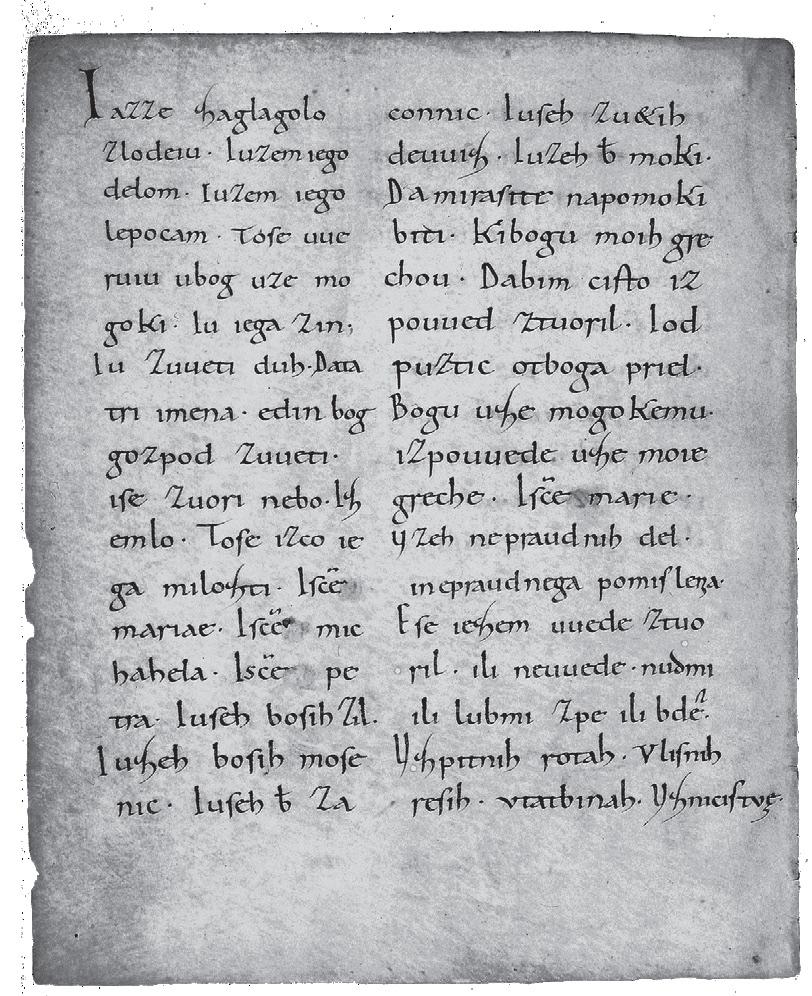 Iazze zaglagolo
Zlodeiu. Iuzem iego
delom. Iuzem iego
lepocam. Tose uue
ruiu ubog uze mo
goki. Iu iega Zin;
Iu Zuueti duh. Data
tri imena. edin bog
gozpod Zuueti.
ise Zuori nebo. Iz
emlo. Tose izco ie
ga milozti. Isce
mariae. Isce mic
hahela. Isce pe
tra. Iuseh bosih Zil.
Iuzeh bosih mose
nic. Iuseh ƀ Za
connic. Iuseh Zu&ih
deuuiz. Iuzeh ƀ moki.
Da mirasite napomoki
biti. Kibogu moih gre
chou. Dabim cisto iz
pouued Ztuoril. Iod
puztic otboga priel.
Bogu uze mogokemu.
izpouuede uze moie
greche. Isce marie.
yzeh nepraudnih del.
inepraudnega pomislena.
Ese iezem uuede Ztuo
ril. ili neuuede. nudmi
ili lubmi Zpe ili bde.
Yzpitnih rotah. Vlisnih
resih. vtatbinah. Yznicistve.